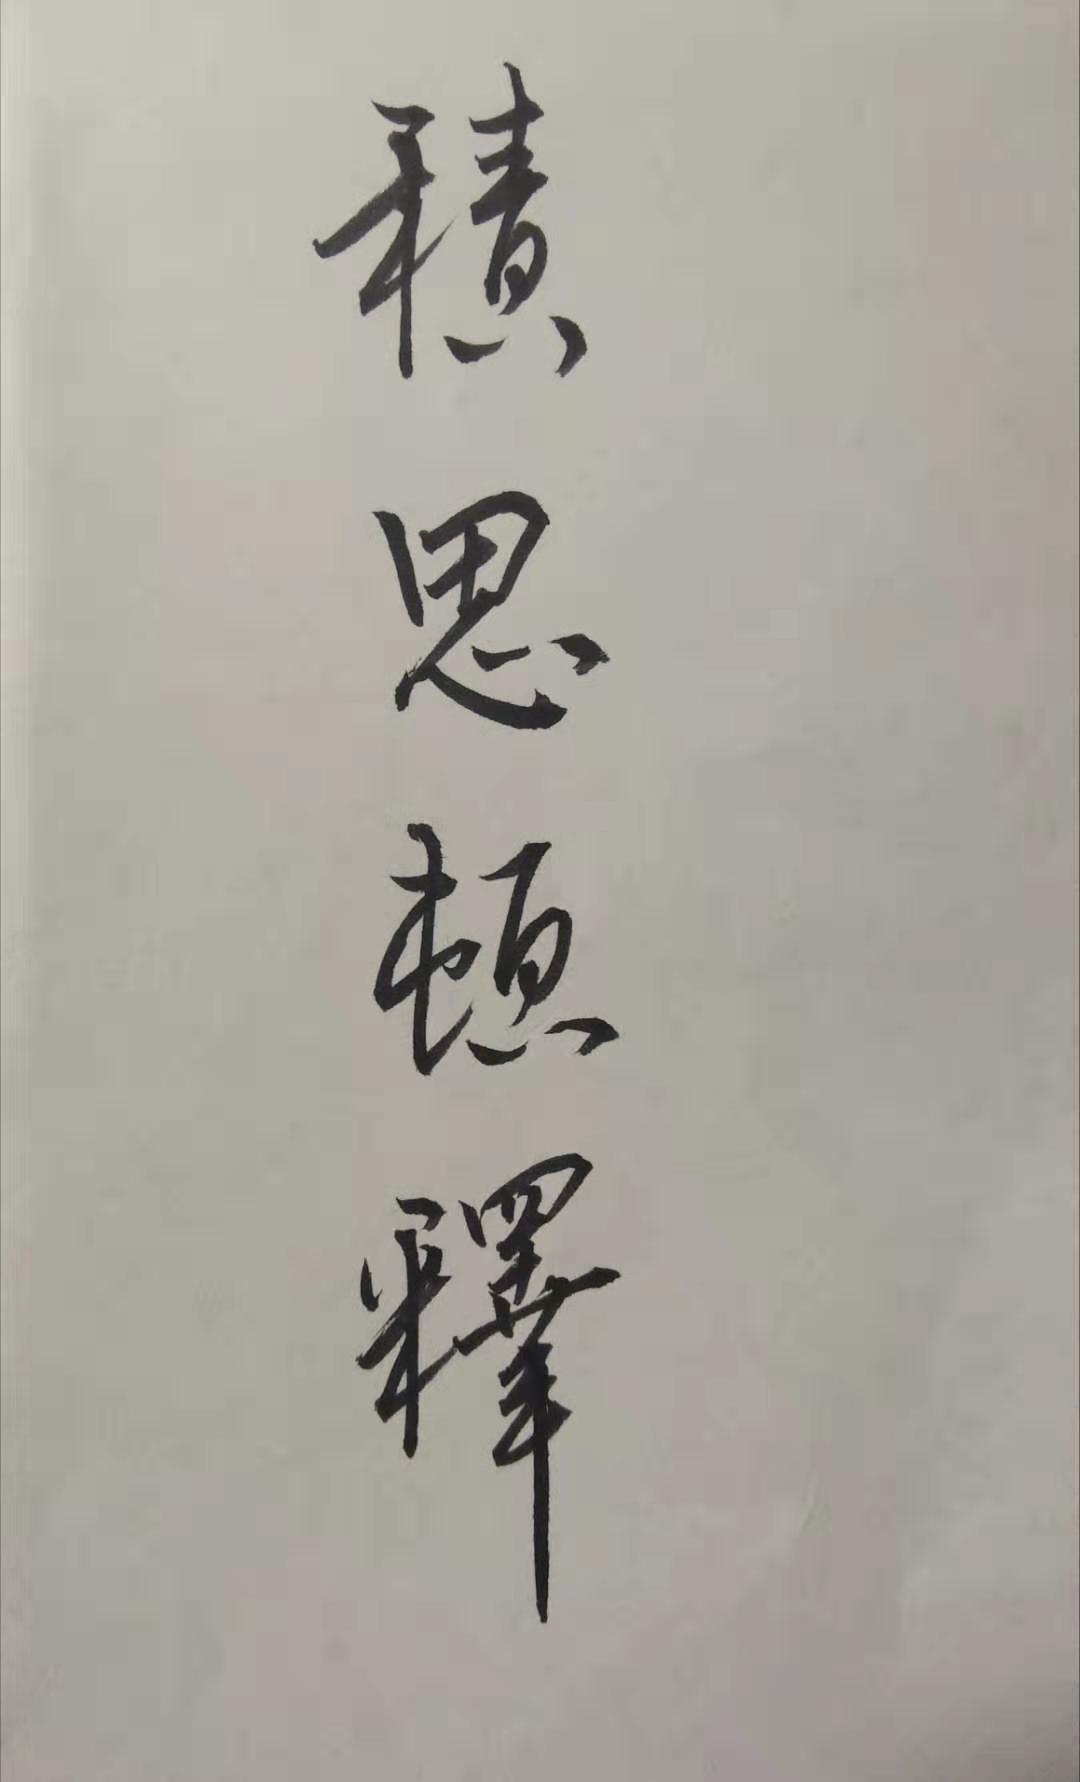 積思頓釋